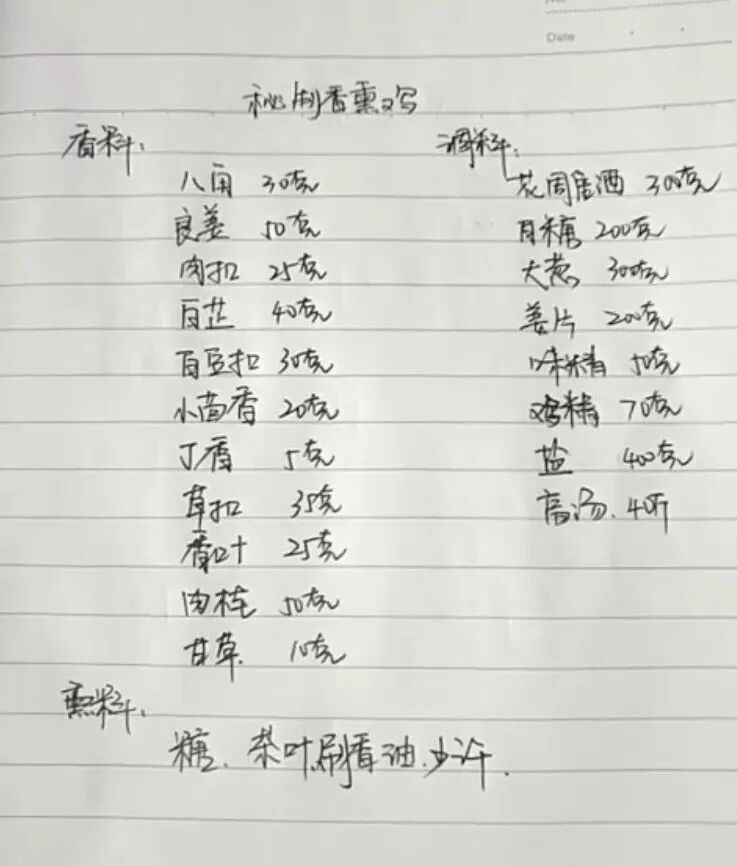 Date
秘制香熏鸡
香料:
八角 30克
良姜 50克
肉扣 25克
白芷 40克
白豆扣 30克
小茴香 20克
丁香 5克
草扣 35克
香叶 25克
肉桂 50克
甘草. 10克
调料:
花周居酒 300克
白糖 200克
大葱 300克
姜片 200克
味精 50克
鸡精 70克
盐 400克
高汤. 40斤
熏料:
糖. 茶叶.刷香油.少许.